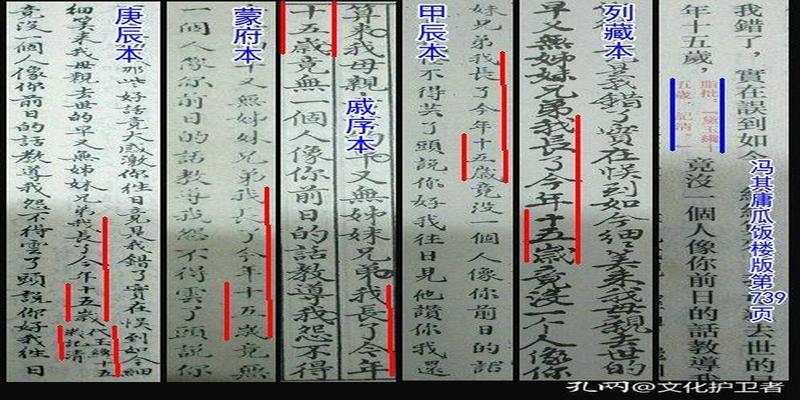 我錯了，實在誤到如今
去世的
年十五歲，
脂批：黛玉纔十
五歲，記清。
竟沒一個人像你前日的話教導我
冯其庸瓜饭楼版第739页
列藏本
我錯了實在悞到如今細細算來我母親去世的
早又無姊妹兄弟我長了今年十五歲竟沒一个人像你
甲辰本
妹兄弟我長了今年十五歲竟沒一個人像你前日的話
不得芸了頭說你好我往日見他讚你我還
算來我母親
又無姊妹兄弟我長了今年
戚序本
十五歲竟無一個人像你前日的話教導我怨不得
蒙府本
又無姊妹兄弟我長了今年十五歲竟無
一個人像你前日的話教導我怨不得雲了頭說你
庚辰本
那些好話竟大感激你往日竟是我錯了實在悞到如今細
細算來我母親去世的早又無姊妹兄弟我長了今年十五歲
代玉終十五
歲記清
竟沒一個人像你前日的話教導我怨不得雲了頭說你好我往日
孔网@文化护卫者